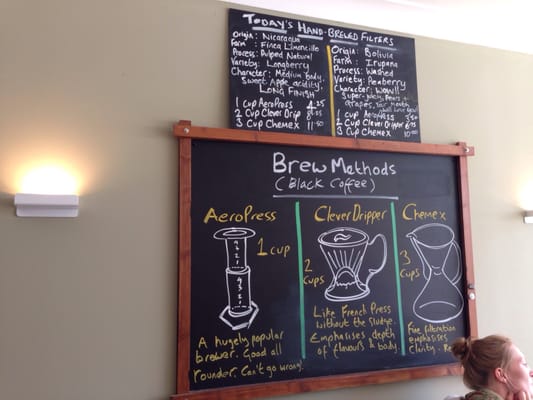 TODAY'S HAND-BREWED FILTERS
Origin: Nicaragua
Farm: Finca Limoncillo
Process: Pulped Natural
Variety: Longberry
Character: Medium body
Sweet Apple acidity.
LONG FINISH
1 CUP AEROPRESS 4.25
2 CUP CLEVER DRIP
3 CUP CHEMEX 11.50
Origin: Bolivia
Farm: Irupana
Process: Washed
Variety: Peaberry
Character: WOW!!
Super-juicy, Pears +
grapes, your mouth
will love you!
1 CUP AEROPRESS 3.50
2 CUP CLEVER DRIPPER
3 CUP CHEMEX 10.00
BREW METHODS
(BLACK COFFEE)
AEROPRESS
1 CUP
A hugely popular
brewer. Good all
rounder. Can't go wrong!
CLEVER DRIPPER
2
CUPS
Like French Press
without the sludge.
Emphasises depth
of flavours & body.
CHEMEX
3
CUPS
Fine filtering
emphasises
clarity.